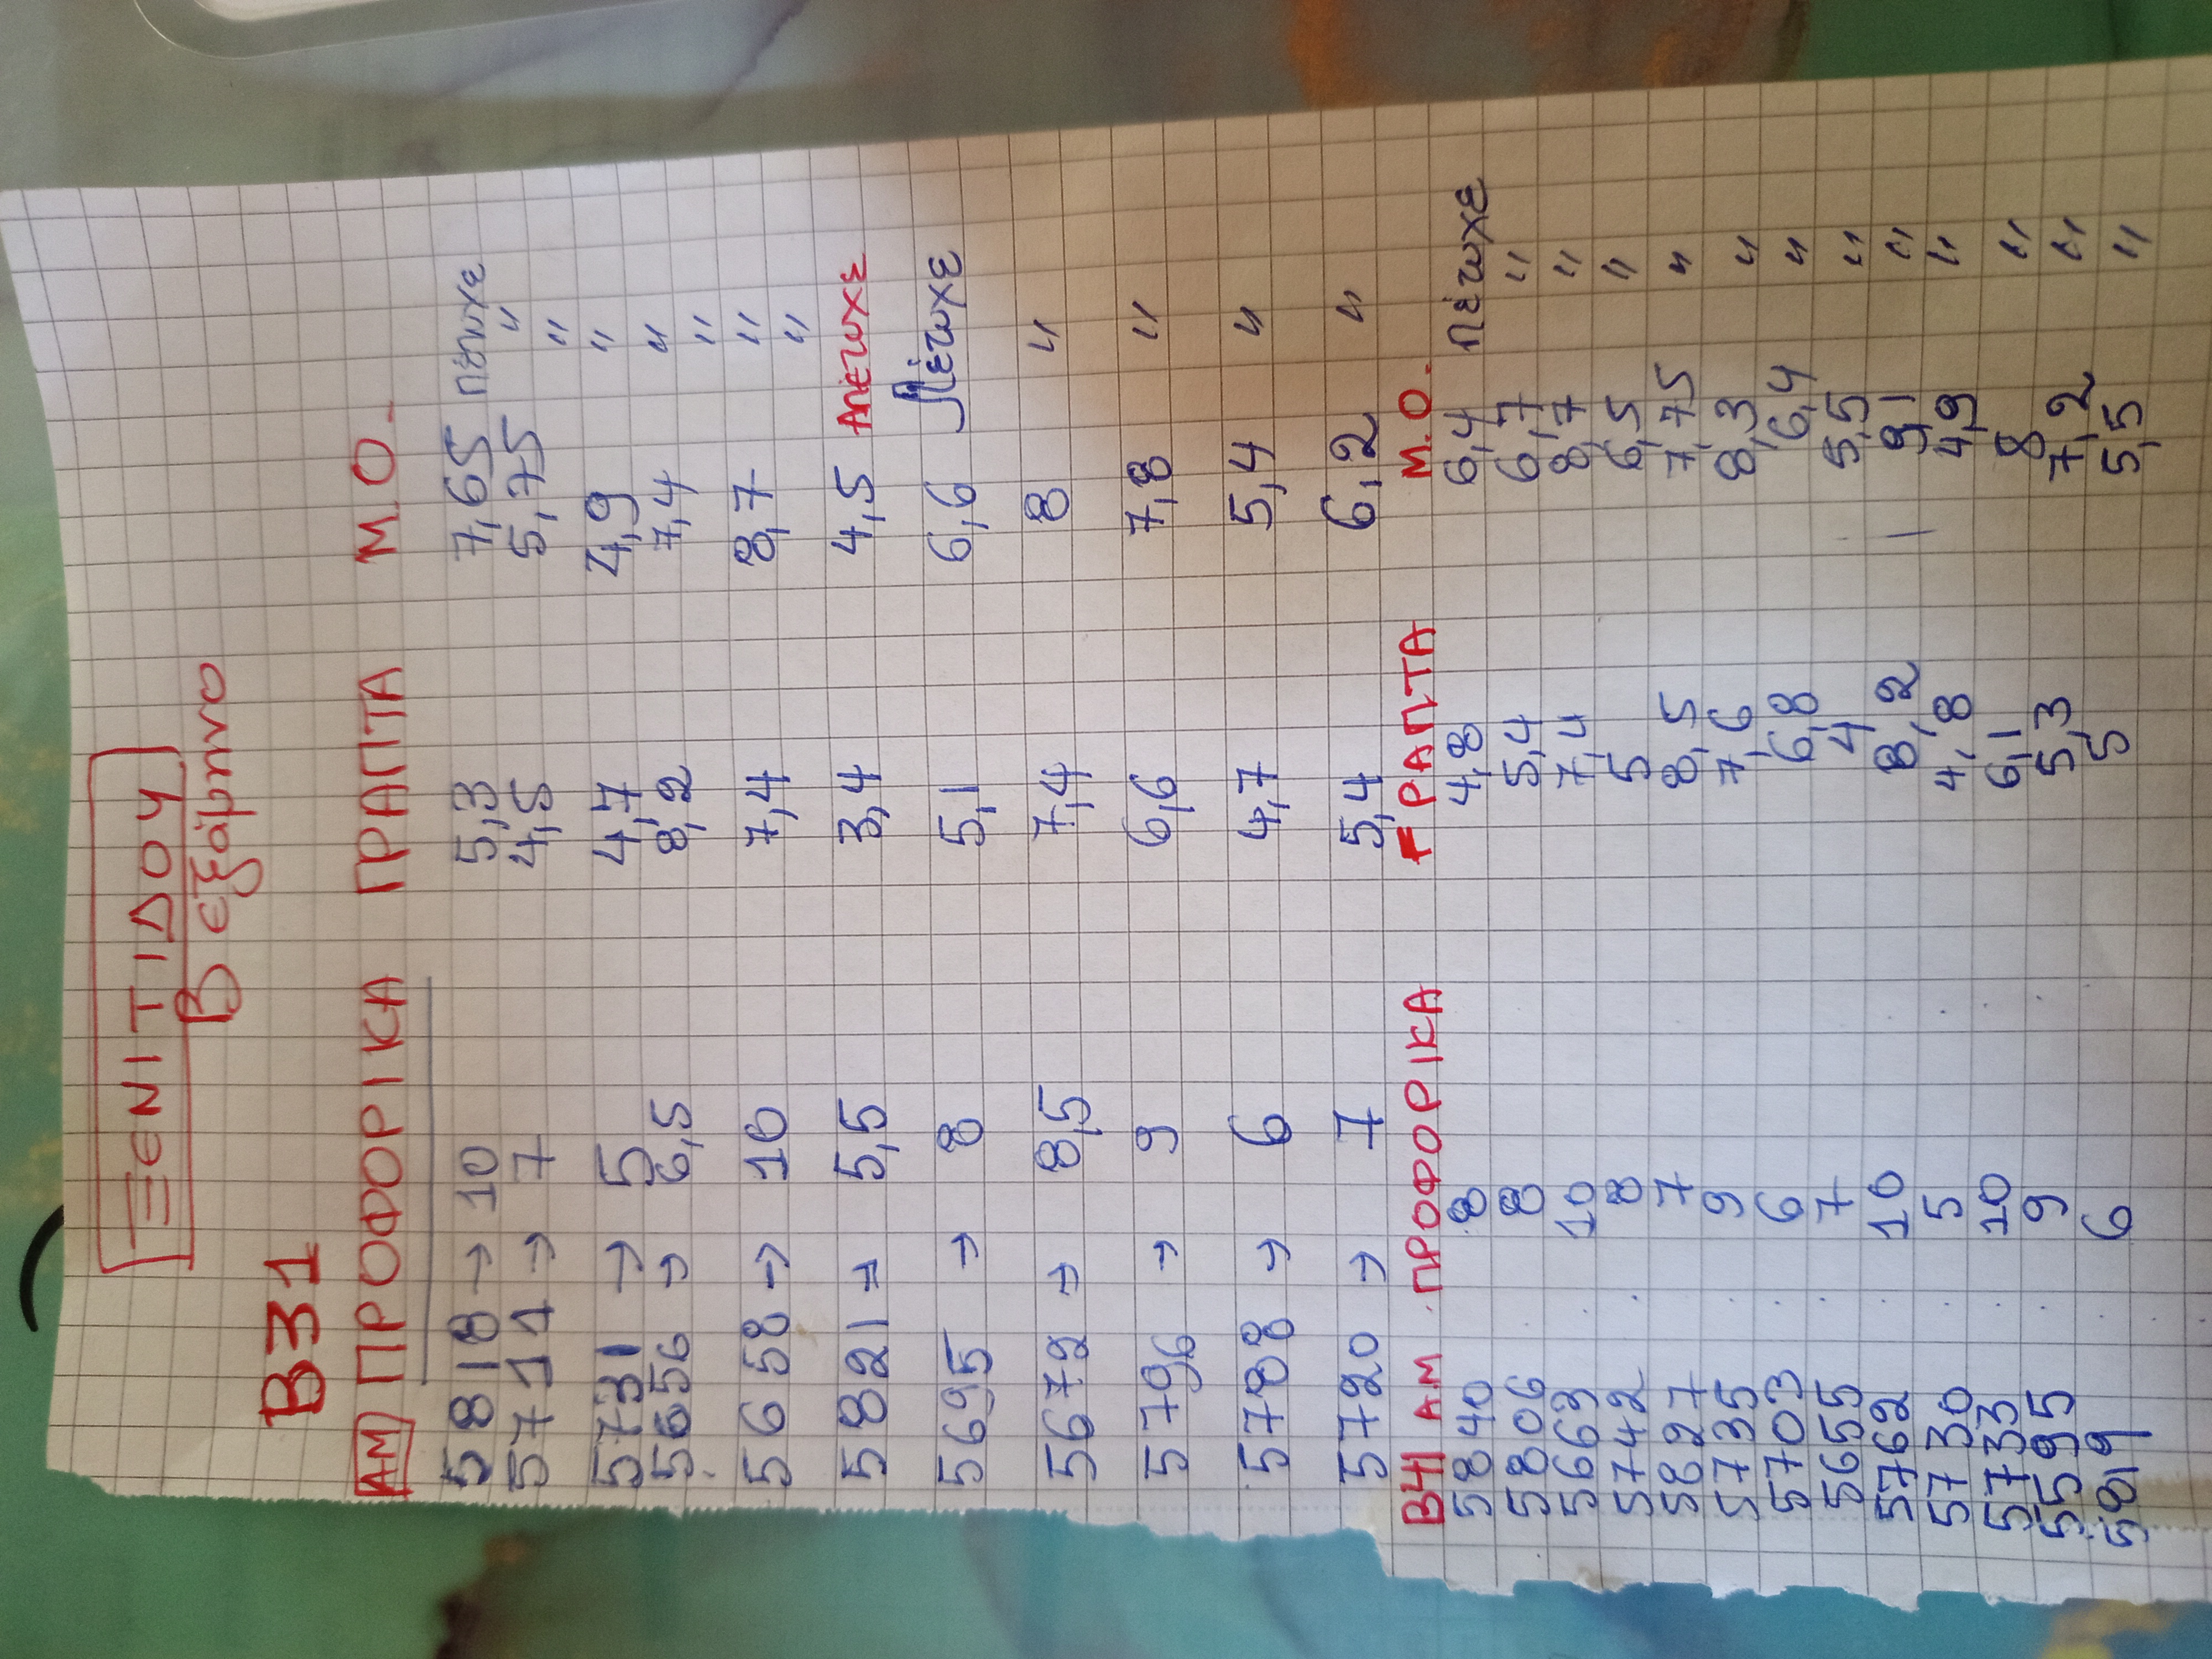 ΞΕΝΙΤΙΔΟΥ
Β εξάμηνο
Β31
ΑΜ ΠΡΟΦΟΡΙΚΑ ΓΡΑΠΤΑ Μ.Ο.
5818 → 10 5,3 7,65 πέτυχε
5714 → 7 4,5 5,75 "
"
5731 → 5 4,7 4,9 "
5656 → 6,5 8,2 7,4 "
"
5658 → 10 7,4 8,7 "
"
5821 → 5,5 3,4 4,5 Απέτυχε
5695 → 8 5,1 6,6 Πέτυχε
5672 → 8,5 7,4 8 "
5796 → 9 6,6 7,8 "
5788 → 6 4,7 5,4 "
5720 → 7 5,4 6,2 "
Β41 ΑΜ ΠΡΟΦΟΡΙΚΑ ΓΡΑΠΤΑ Μ.Ο.
5840 8 4,8 6,4 πέτυχε
5806 8 5,4 6,7 "
5663 10 7,4 8,7 "
5742 8 5 6,5 "
5827 7 8,5 7,75 "
5735 9 7,6 8,3 "
5703 6 6,8 6,4 "
5655 7 4 5,5 "
5762 10 8,2 9,1 "
5730 5 4,8 4,9 "
5733 10 6,1 8 "
5595 9 5,3 7,2 "
5819 6 5 5,5 "